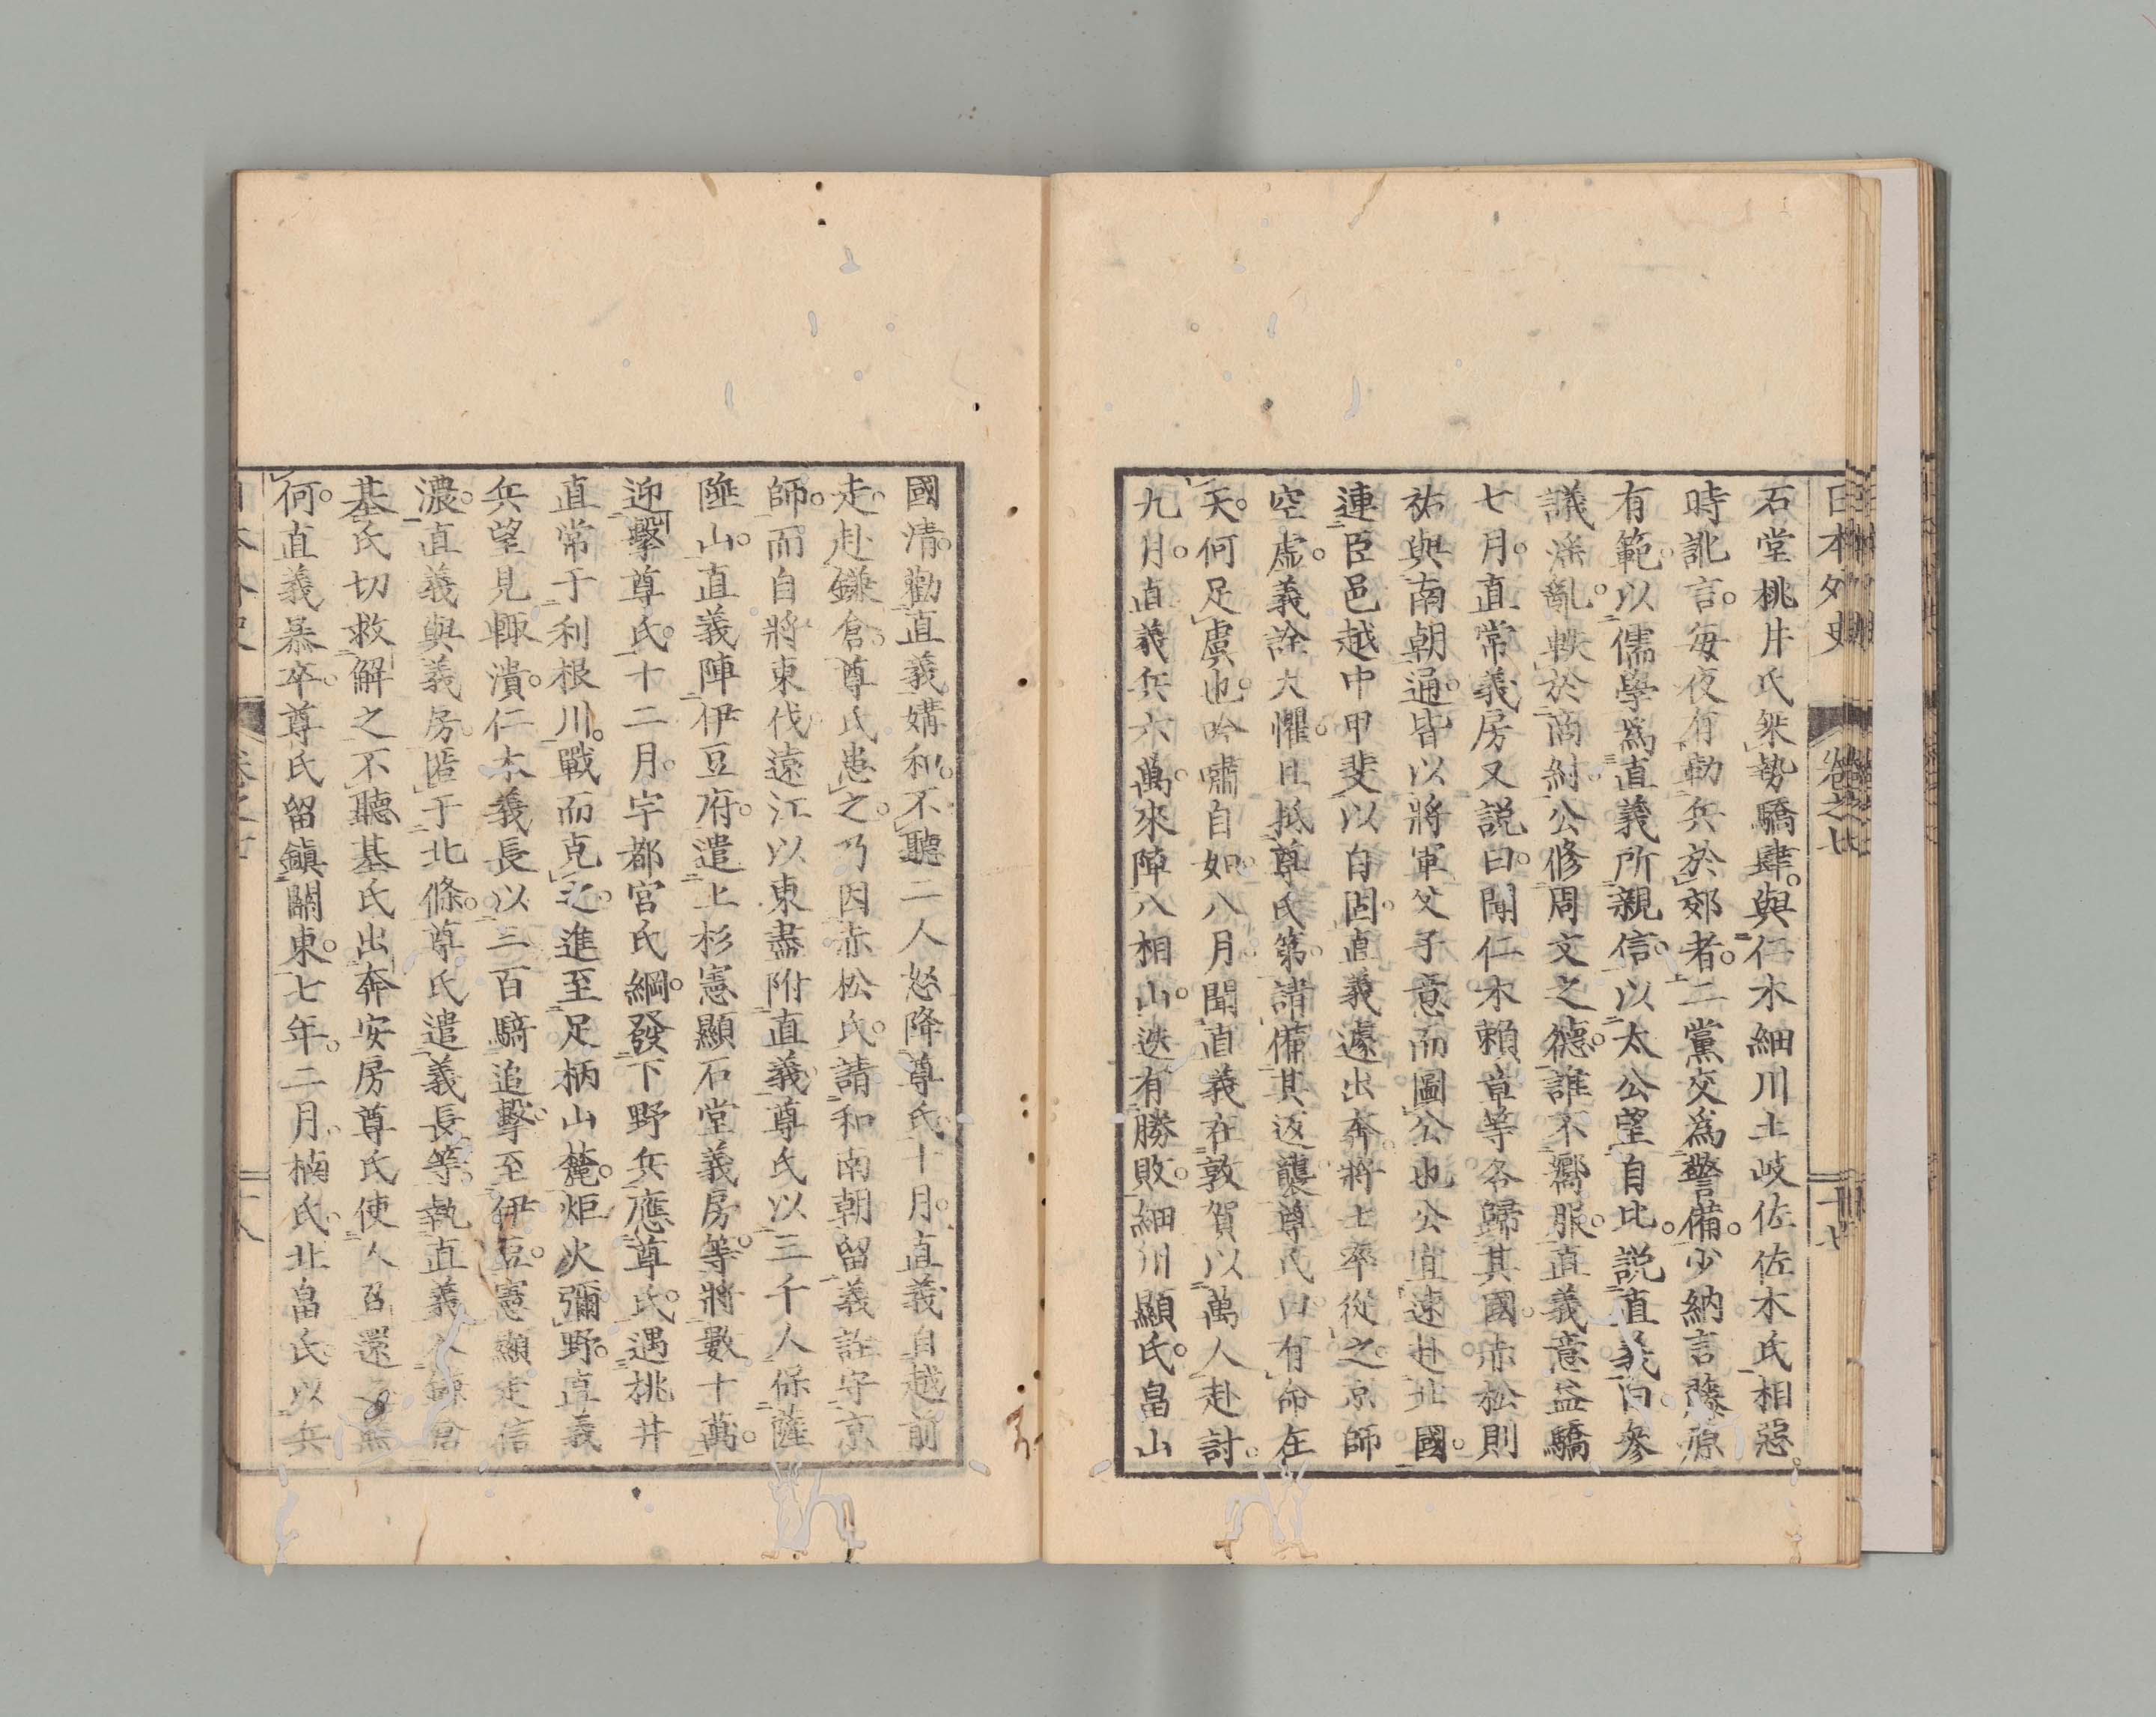 日本外史 卷之七 十七
石堂桃井氏桀勢驕肆。與仁木細川土岐佐佐木氏相惡。
時訛言。每夜有勒兵於郊者。二黨交爲警備。少納言藤原
有範。以儒學爲直義所親信。以太公望自比。説直義曰。參
議淫亂。軼於商紂。公修周文之德。誰不嚮服。直義意益驕
七月。直常義房又説曰。聞仁木賴章等各歸其國。赤松則
祐與南朝通。皆以將軍父子意而圖公也。公宜速赴北國。
連臣邑越中甲斐以自固。直義遽出奔。將士率從之。京師
空虛。義詮大懼。日抵尊氏第。請備其返襲。尊氏曰。有命在
天。何足虞也。吟嘯自如。八月。聞直義在敦賀。以萬人赴討。
九月。直義兵六萬。來陣八相山。迭有勝敗。細川顯氏。畠山
國清。勸直義媾和。不聽。二人怒降尊氏。十月。直義自越前
走赴鎌倉。尊氏患之。乃因赤松氏。請和南朝。留義詮守京
師。而自將東伐。遠江以東。盡附直義。尊氏以三千人保薩
陲山。直義陣伊豆府。遣上杉憲顯石堂義房等將數十萬。
迎擊尊氏。十二月。宇都宮氏綱。發下野兵應尊氏。遇桃井
直常于利根川。戰而克之。進至足柄山麓。炬火彌野。直義
兵望見輙潰。仁木義長以三百騎追擊。至伊豆。憲顯走信
濃。直義與義房。匿于北條。尊氏遣義長等。執直義入鎌倉
基氏切救解之。不聽。基氏出奔安房。尊氏使人召還。無
何。直義暴卒。尊氏留鎭關東。七年。二月。楠氏。北畠氏。以兵